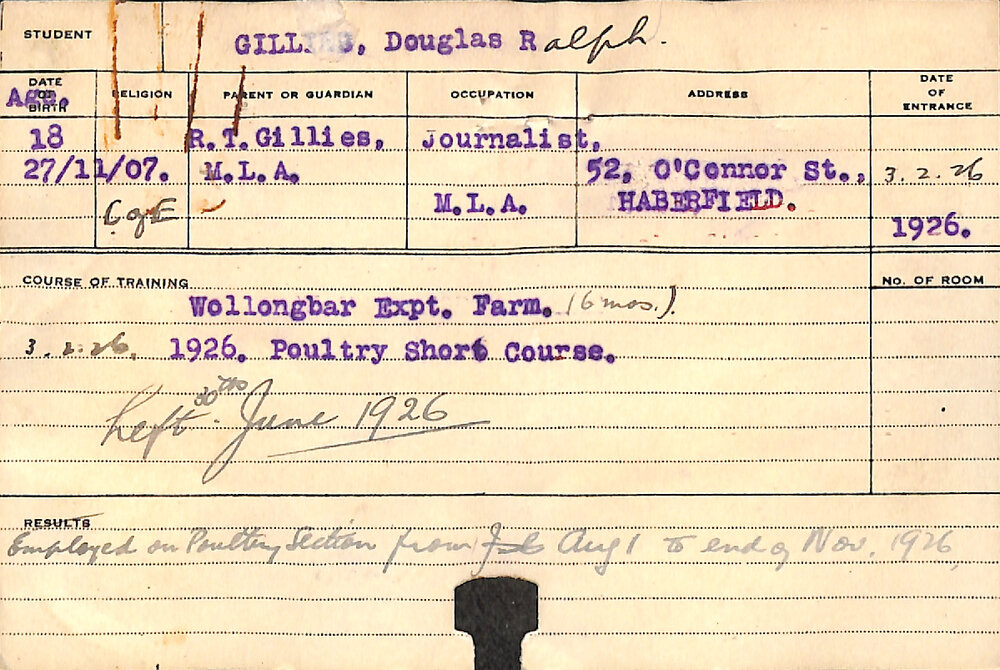 STUDENT
GILLIES, Douglas Ralph.
DATE OF BIRTH
Age,
RELIGION
PARENT OR GUARDIAN
OCCUPATION
ADDRESS
DATE OF ENTRANCE
18
R.T.Gillies,
Journalist,
27/11/07.
M.L.A.
52, O'Connor St.,
3.2.26
C of E
M.L.A.
HABERFIELD.
1926.
COURSE OF TRAINING
No. OF ROOM
Wollongbar Expt. Farm. (6 mos.).
3.2.26. 1926. Poultry Short Course.
Left 30th June 1926
RESULTS
Employed on Poultry Section from Aug 1 to end of Nov. 1926